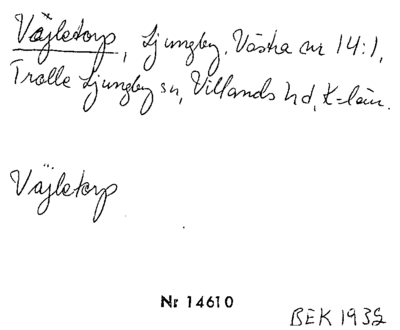 Väjletorp, Ljungby, Västra nr 14:1,
Trolle Ljungby sn, Villands hd, K-län.
Väjletorp
Nr 14610
BEK 1932